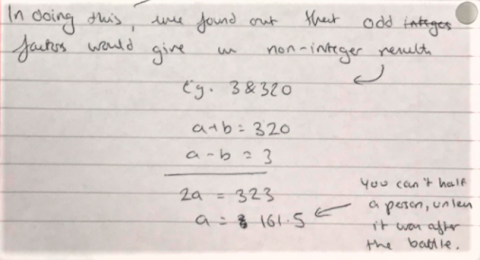 In doing this, we found out that odd integer
factors would give us non-integer results
Eg. 3 & 320
a+b = 320
a-b = 3
2a = 323
a = 161.5
You can't half
a person, unless
it was after
the battle.